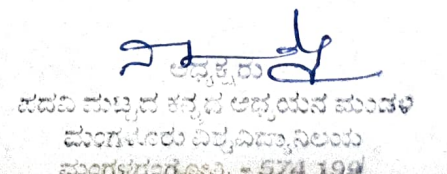 ಅಧ್ಯಕ್ಷರು
ಪದವಿ ಮಟ್ಟದ ಕನ್ನಡ ಅಧ್ಯಯನ ಮಂಡಳಿ
ಮಂಗಳೂರು ವಿಶ್ವವಿದ್ಯಾನಿಲಯ
ಮಂಗಳಗಂಗೋತ್ರಿ - 574 199